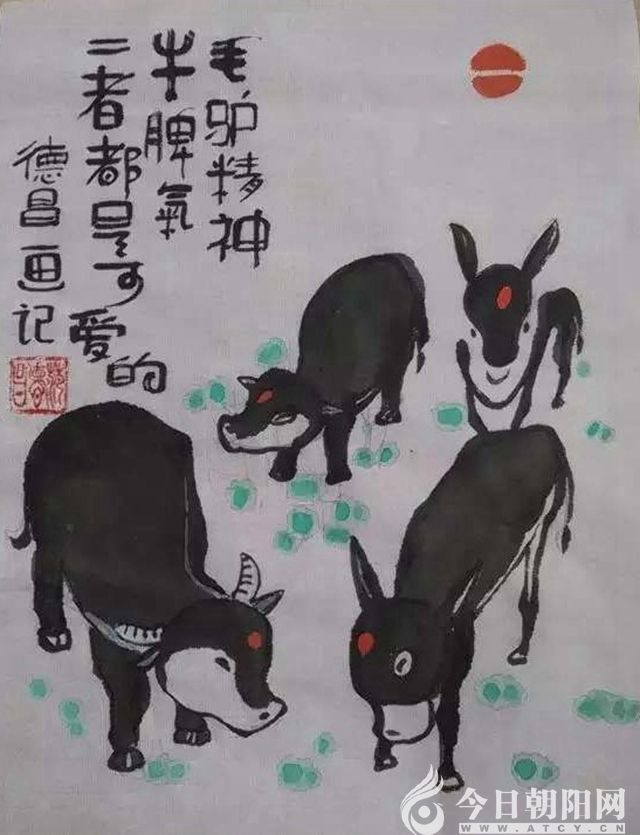 毛驴精神
牛脾氣
二者都是可爱的
德昌画记
今日朝阳网
WWW.ATCY.CN